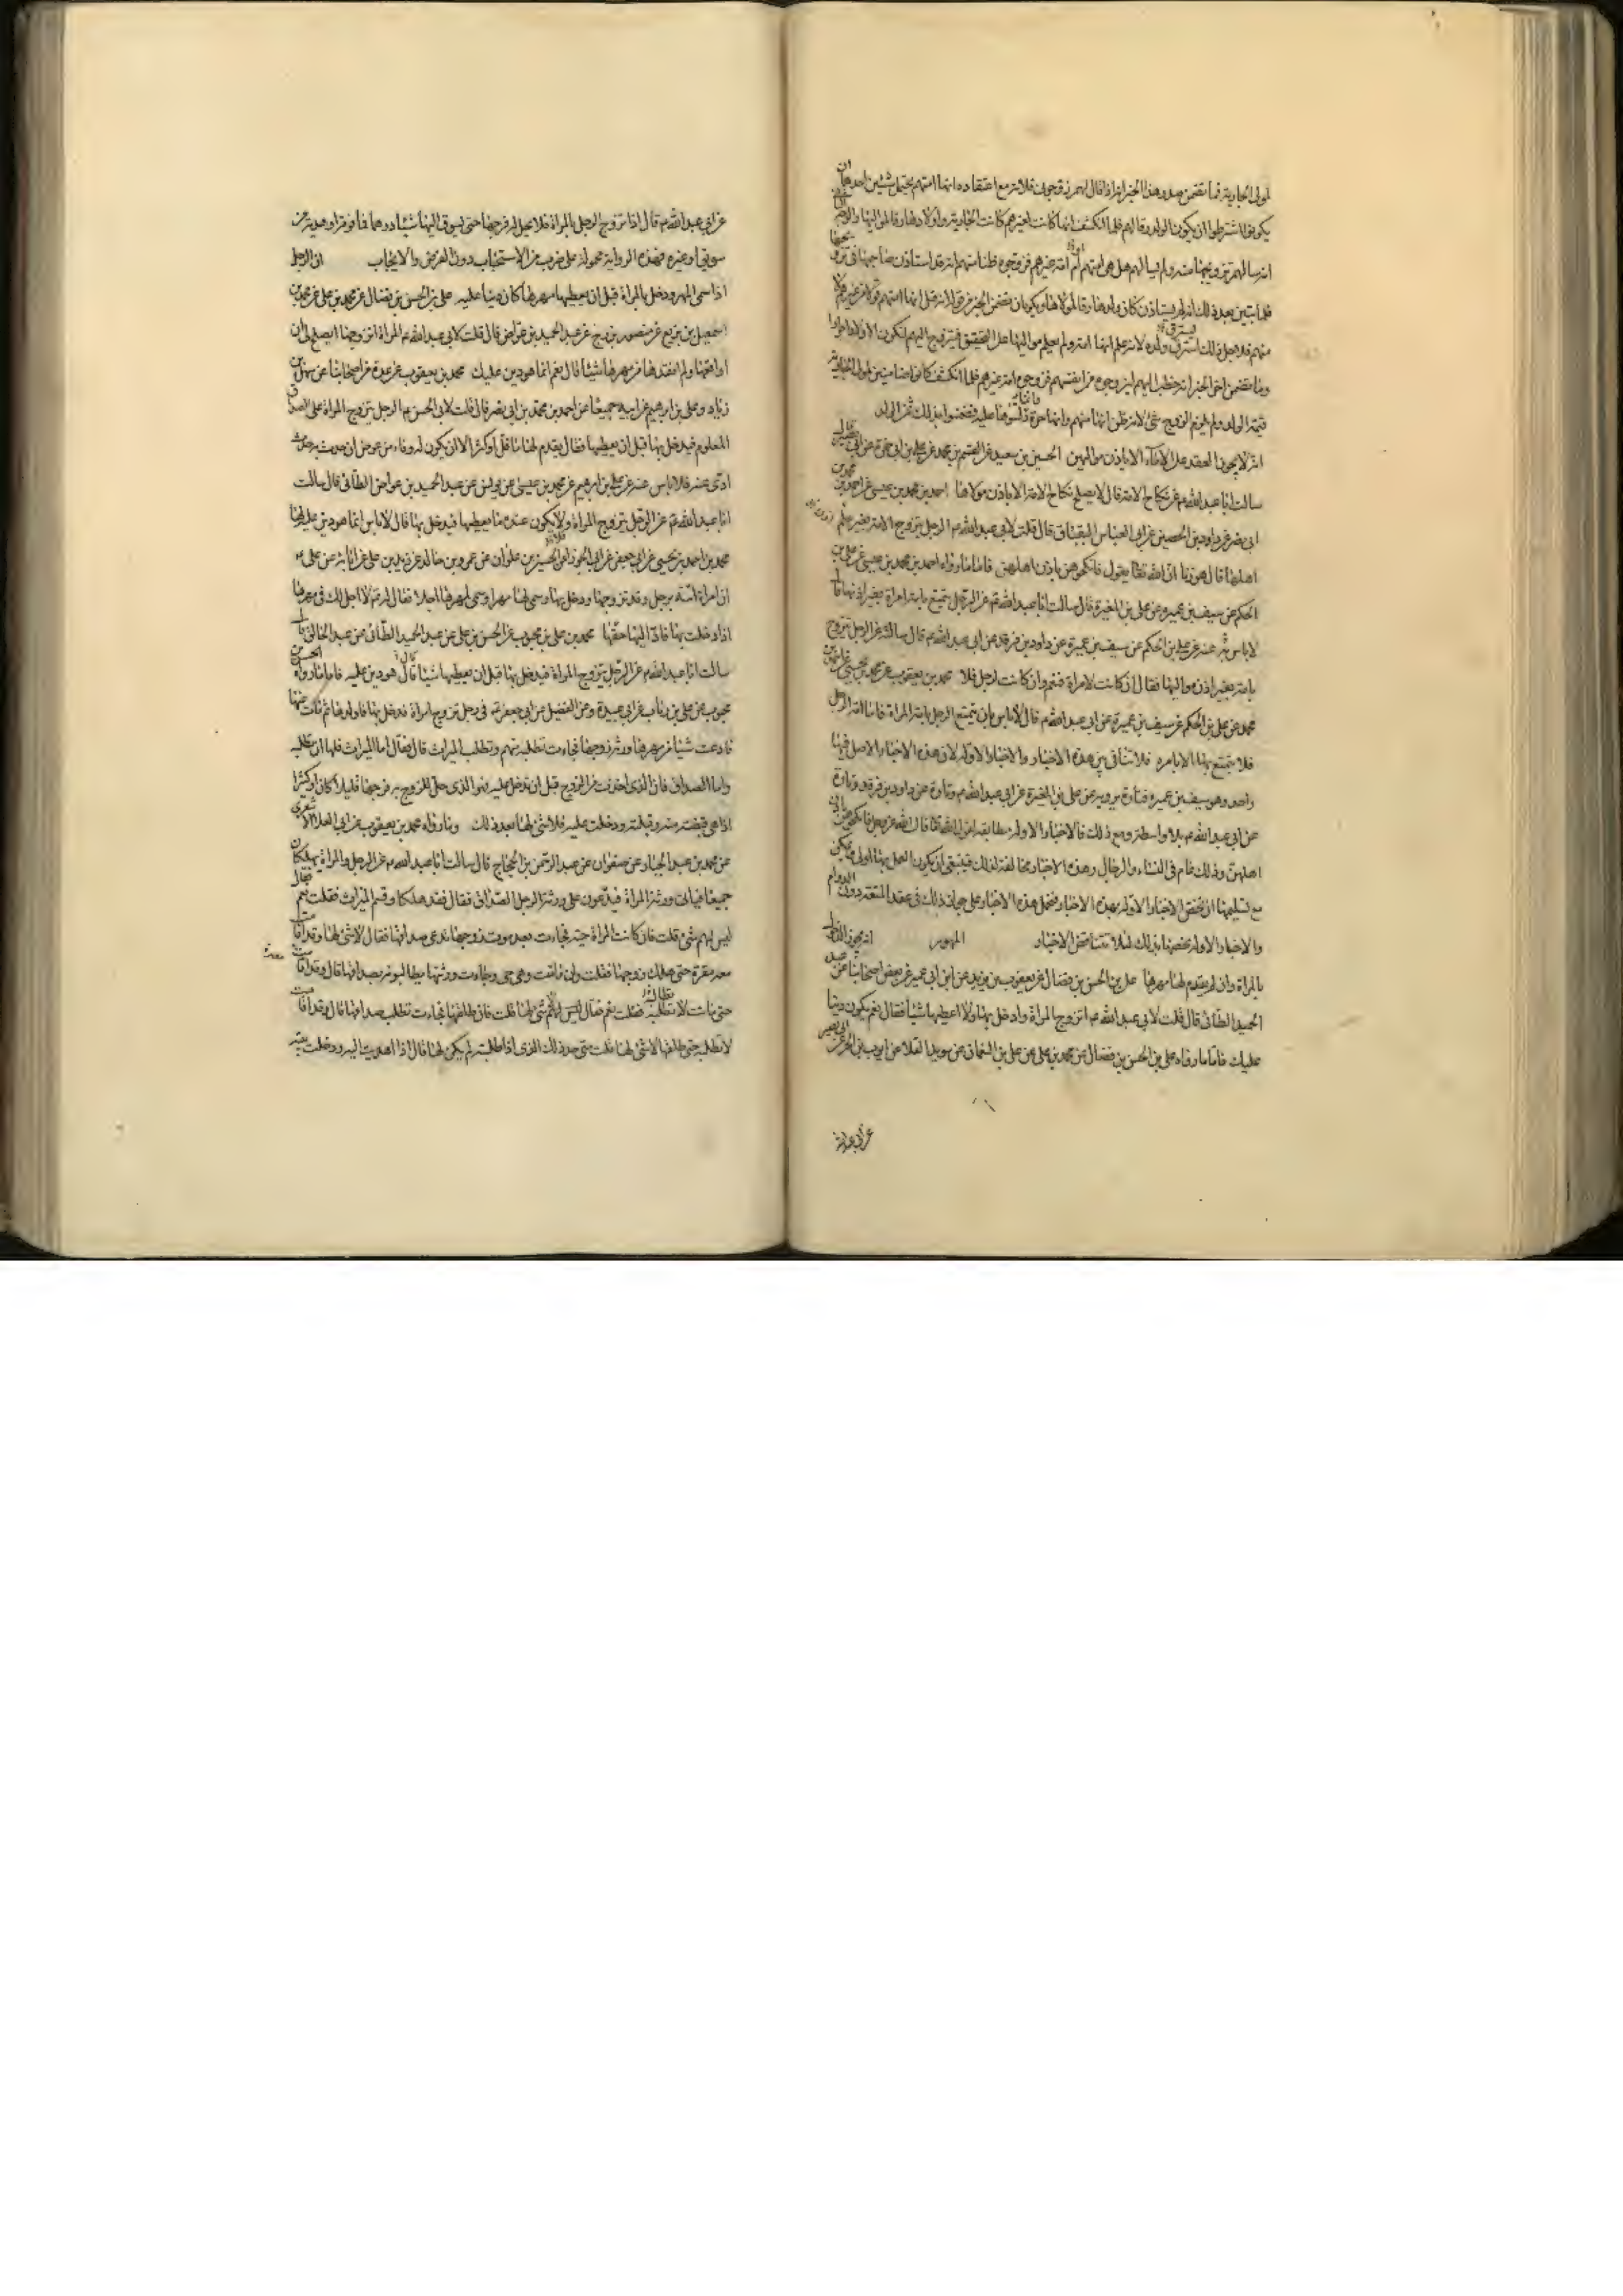 لمولى الجارية فما تضمن صدر هذا الخبر انه اذا قال لهم زوجوني فلانة مع اعتقاده انها امتهم يحتمل شيئين احدهما ان
يكونوا اشترطوا ان يكون الولد رقا لهم فلما انكشف انها كانت لغيرهم كانت الجارية واولادها رقا لمواليها
انه سألهم تزويجها منه ولم يسألهم هل هي امتهم أم امة غيرهم فزوجوه ظنا منهم انه قد استاذن صاحبها في تزويجها
فلما تبين بعد ذلك انه لم يستاذن كان ولدها رقا لمولاها
منهم فلاجل ذلك استرق ولده لانه علم انها امة ولم يعلم مواليها على التحقيق فيتزوج اليهم لتكون الاولاد احرارا
وما تضمن اخر الخبر انه خطب اليهم ان يزوجوه من انفسهم فزوجوه امة غيرهم فلما انكشف كانوا ضامنين لمولى الجارية
قيمة الولد ولم يلزم الزوج شئ لانه ظن انها منهم وانها حرة فدلسوها عليه فضمنوا بذلك ثمن الولد
انه لا يجوز العقد على الاماء الا باذن مواليهن الحسين بن سعيد عن القسم بن محمد عن علي بن ابي حمزة عن ابي بصير قال
سالت ابا عبد الله ع عن نكاح الامة قال لا يصلح نكاح الامة الا باذن مولاها احمد بن محمد بن عيسى عن احمد بن محمد بن
ابي نصر عن داود بن الحصين عن ابي العباس البقباق قال قلت لابي عبد الله ع الرجل يتزوج الامة بغير علم
اهلها قال هو زنا ان الله تعالى يقول فانكحوهن باذن اهلهن فاما ما رواه احمد بن محمد بن عيسى عن علي بن
الحكم عن سيف بن عميرة عن علي بن المغيرة قال سالت ابا عبد الله ع عن الرجل يتمتع بامة امراة بغير اذنها قال
لا باس به عنه عن علي بن الحكم عن سيف بن عميرة عن داود بن فرقد عن ابي عبد الله ع قال سالته عن الرجل يتزوج
بامة بغير اذن مواليها فقال ان كانت لامراة فنعم وان كانت لرجل فلا محمد بن يعقوب عن محمد بن يحيى عن احمد بن
محمد عن علي بن الحكم عن سيف بن عميرة عن ابي عبد الله ع قال لا باس بان يتمتع الرجل بامة المراة فاما امة الرجل
فلا يتمتع بها الا بامره فلا تنافي بين هذه الاخبار والاخبار الاولة لان هذه الاخبار الاصل فيها
واحد وهو سيف بن عميرة فتارة يرويه عن علي بن المغيرة عن ابي عبد الله ع وتارة عن داود بن فرقد وتارة
عن ابي عبد الله ع بلا واسطة ومع ذلك فالاخبار الاولة مطابقة لقول الله تعالى قال الله عز وجل فانكحوهن باذن
اهلهن وذلك عام في النساء والرجال وهذه الاخبار مخالفة لذلك فينبغي ان يكون العمل بها اولى ويمكن
مع تسليمها ان نخص الاخبار الاولة بهذه الاخبار فنحمل هذه الاخبار على جواز ذلك في عقد المتعة دون الدوام
والاخبار الاولة نخصها بذلك لئلا تتناقض الاخبار المهور انه يجوز الدخول
بالمراة وان لم يقدم لها مهرها علي بن الحسن بن فضال عن يعقوب بن يزيد عن ابن ابي عمير عن بعض اصحابنا عن عبد
الحميد الطائي قال قلت لابي عبد الله ع اتزوج المراة وادخل بها ولا اعطيها شيئا فقال نعم يكون دينا
عليك فاما ما رواه علي بن الحسن بن فضال عن محمد بن علي عن علي بن النعمان عن سويد القلا عن ايوب بن الحر عن ابي بصير
عن ابي عبد الله
عن ابي عبد الله ع قال اذا تزوج الرجل المراة فلا يحل له فرجها حتى يسوق اليها شيئا درهما فما فوقه او هدية من
سويق او غيره فهذه الرواية محمولة على ضرب من الاستحباب دون الفرض والايجاب ان الرجل
اذا سمى المهر ودخل بالمراة قبل ان يعطيها مهرها كان دينا عليه علي بن الحسن بن فضال عن محمد بن علي عن محمد بن
اسمعيل بن بزيع عن منصور بن بزرج عن عبد الحميد بن عواض قال قلت لابي عبد الله ع المراة اتزوجها ايصلح لي ان
اواقعها ولم انقدها من مهرها شيئا قال نعم انما هو دين عليك محمد بن يعقوب عن عدة من اصحابنا عن سهل بن
زياد وعلي بن ابرهيم عن ابيه جميعا عن احمد بن محمد بن ابي نصر قال قلت لابي الحسن ع الرجل يتزوج المراة على الصداق
المعلوم فيدخل بها قبل ان يعطيها فقال يقدم لها ما قل او كثر الا ان يكون له وفاء من عرض ان حدث به حدث
ادى عنه فلا باس عنه عن علي بن ابرهيم عن محمد بن عيسى عن يونس عن عبد الحميد بن عواض الطائي قال سالت
ابا عبد الله ع عن الرجل يتزوج المراة ولا يكون عنده ما يعطيها فيدخل بها قال لا باس انما هو دين عليه لها
محمد بن احمد بن يحيى عن ابي جعفر عن ابي الجوزاء عن الحسين بن علوان عن عمرو بن خالد عن زيد بن علي عن ابائه عن علي ع
ان امراة اتته برجل وقد تزوجها ودخل بها وسمى لها مهرا وسمى لمهرها اجلا فقال له ع لا اجل لك في مهرها
اذا دخلت بها فاد اليها حقها محمد بن علي بن محبوب عن الحسن بن علي عن عبد الحميد الطائي عن عبد الخالق قال
سالت ابا عبد الله ع عن الرجل يتزوج المراة فيدخل بها قبل ان يعطيها شيئا قال هو دين عليه فاما ما رواه الحسن بن
محبوب عن علي بن رئاب عن ابي عبيدة وعن الفضيل عن ابي جعفر ع في رجل تزوج امراة فدخل بها فاولدها ثم مات عنها
فادعت شيئا من مهرها ورثة زوجها فجاءت تطلبه منهم وتطلب الميراث قال فقال اما الميراث فلها ان تطلبه
واما الصداق فان الذي اخذت من الزوج قبل ان تدخل عليه فهو الذي حل للزوج به فرجها قليلا كان او كثيرا
اذا هي قبضته منه وقبلته ودخلت عليه فلا شئ لها بعد ذلك وما رواه محمد بن يعقوب عن ابي علي الاشعري
عن محمد بن عبد الجبار عن صفوان عن عبد الرحمن بن الحجاج قال سالت ابا عبد الله ع عن الرجل والمراة يهلكان
جميعا فياتي ورثة المراة فيدعون على ورثة الرجل الصداق فقال فقد هلكا وقسم الميراث فقلت نعم فقال
ليس لهم شئ قلت فان كانت المراة حية فجاءت بعد موت زوجها تدعي صداقها فقال لا شئ لها وقد اقامت
معه مقرة حتى هلك زوجها فقلت وان ماتت وهي حي وجاءت ورثتها يطالبونه بصداقها قال وقد اقامت
حتى ماتت لا تطلبه فقلت نعم فقال ليس لهم شئ لها قلت فان طلقها فجاءت تطلب صداقها قال وقد اقامت
لا تطلبه حتى طلقها لا شئ لها قلت متى حد ذلك الذي اذا طلبته لم يكن لها قال اذا اهديت اليه ودخلت بيته